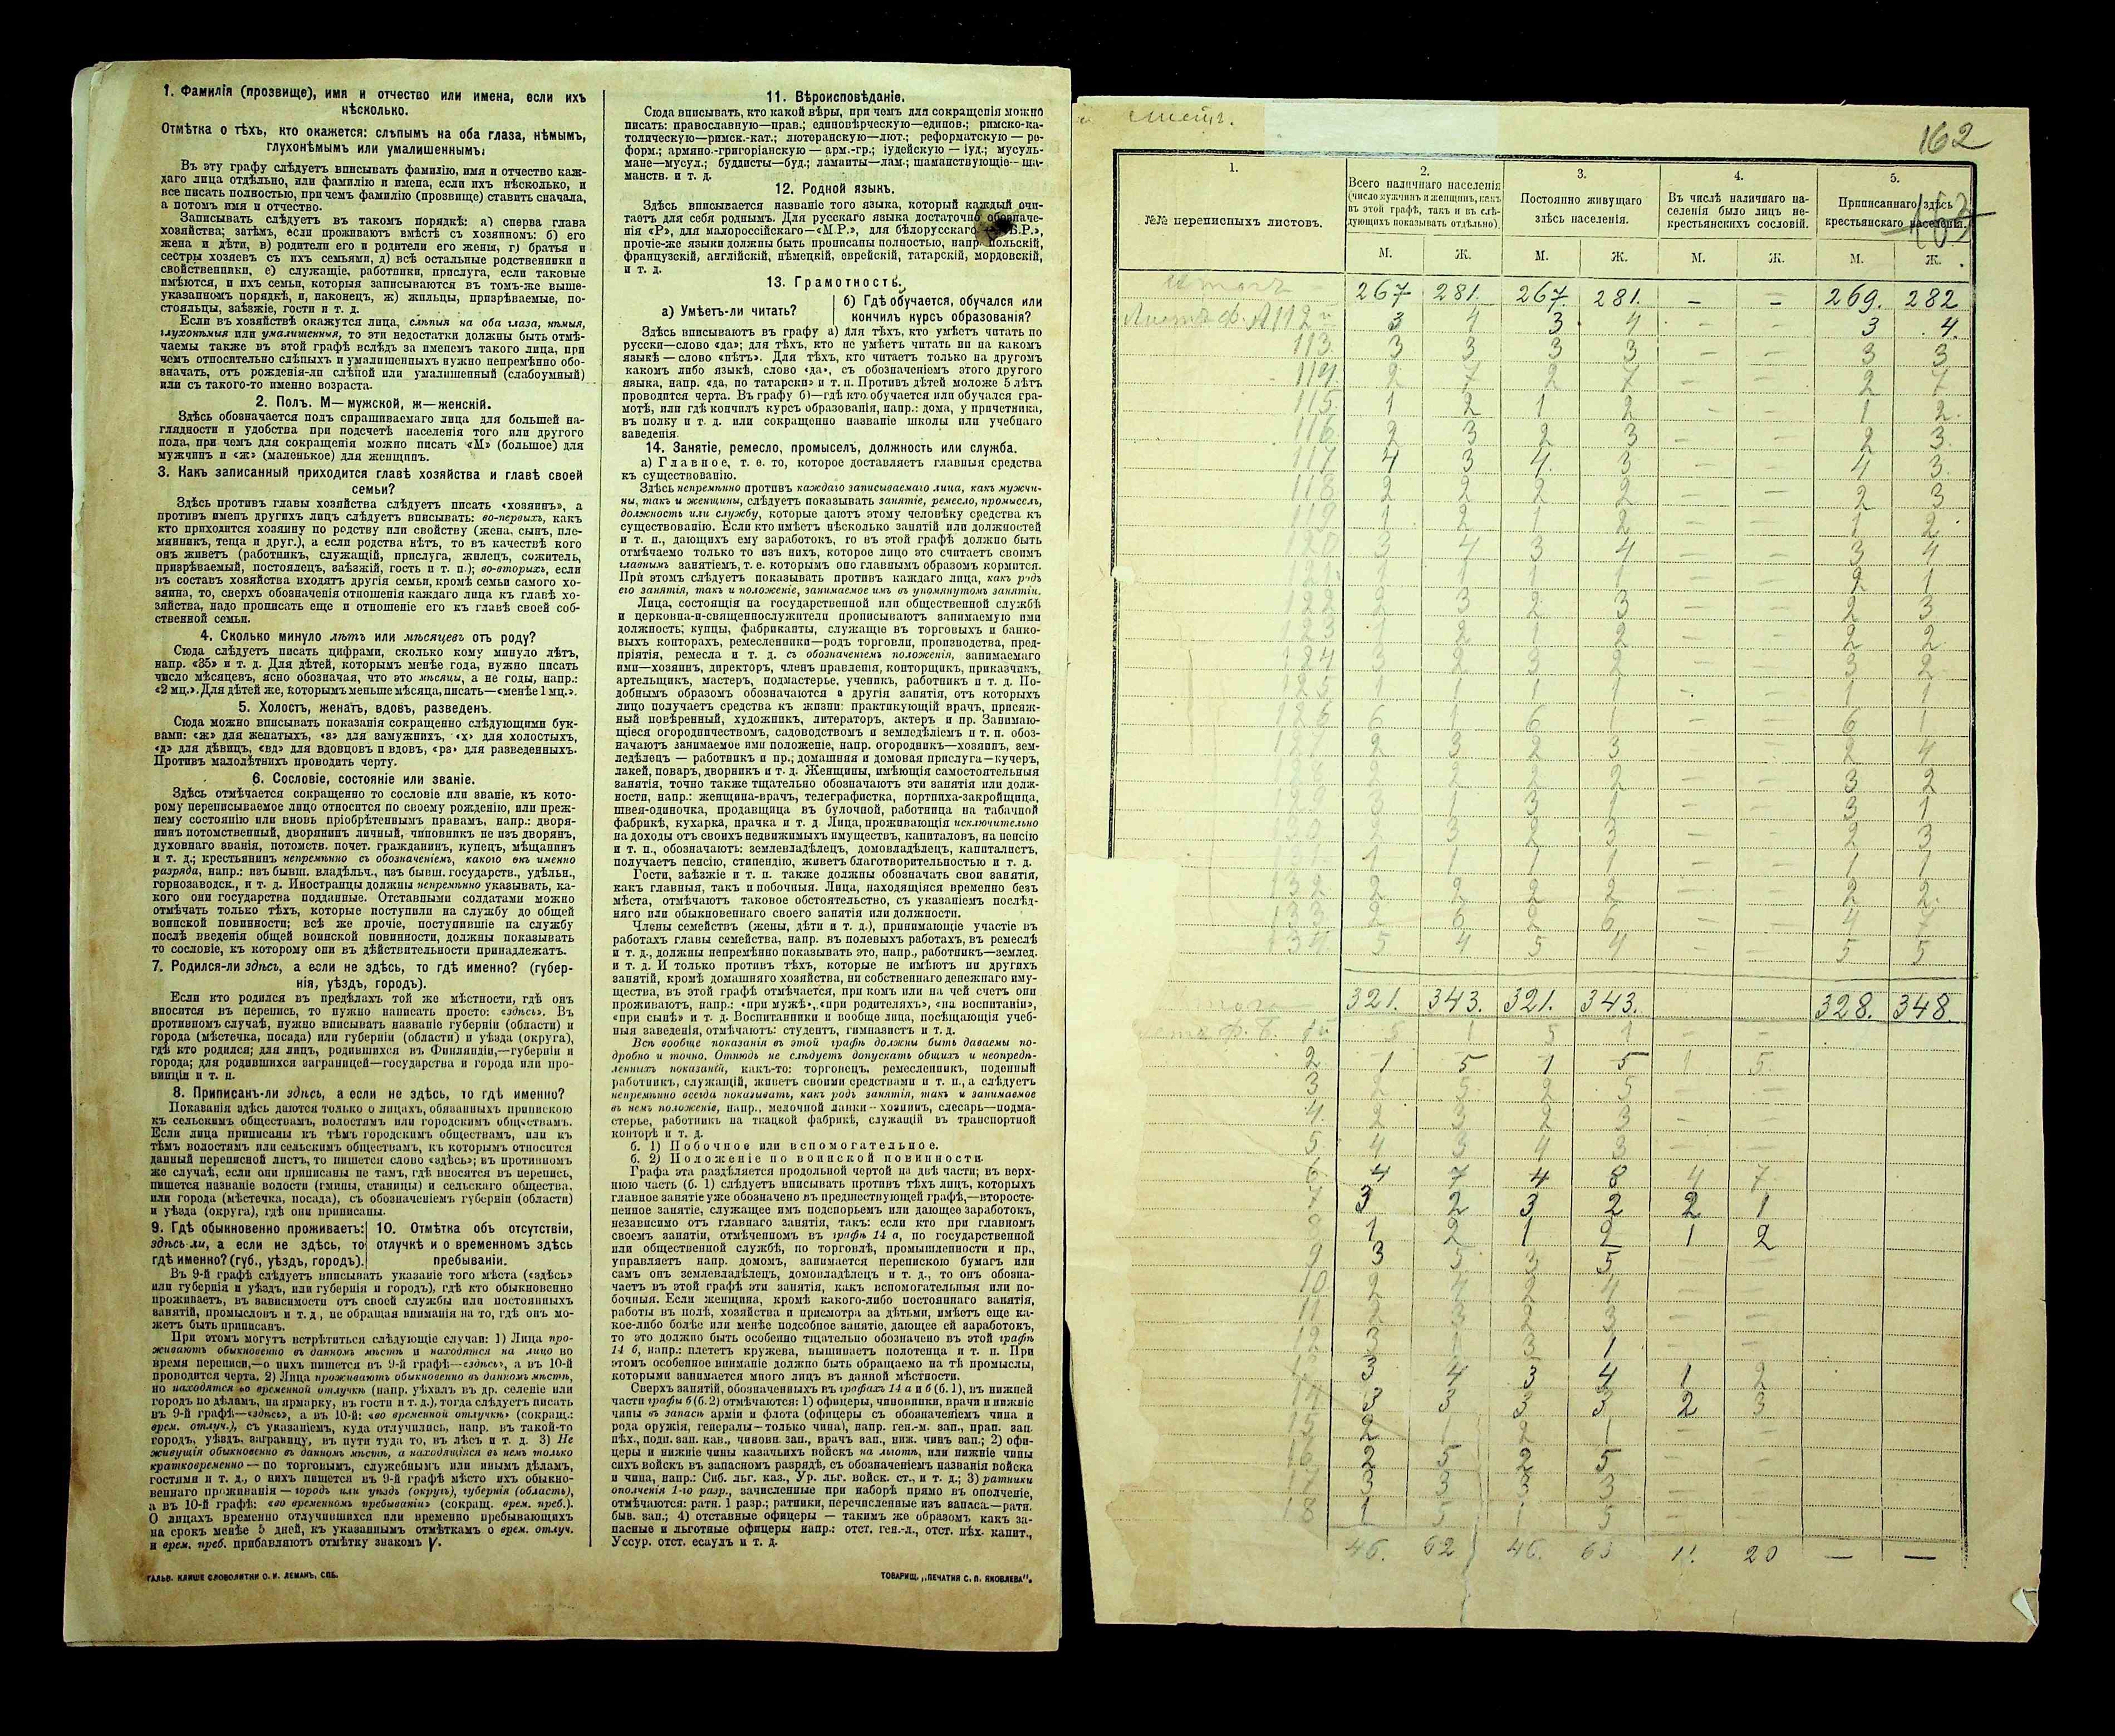 1. Фамилія (прозвище), имя и отчество или имена, если ихъ
нѣсколько.
Отмѣтка о тѣхъ, кто окажется: слѣпымъ на оба глаза, нѣмымъ,
глухонѣмымъ или умалишеннымъ.
Въ эту графу слѣдуетъ вписывать фамилію, имя и отчество каж-
даго лица отдѣльно, или фамилію и имена, если ихъ нѣсколько, и
все писать полностью, при чемъ фамилію (прозвище) ставить сначала,
а потомъ имя и отчество.
Записывать слѣдуетъ въ такомъ порядкѣ: а) сперва глава
хозяйства; затѣмъ, если проживаютъ вмѣстѣ съ хозяиномъ: б) его
жена и дѣти, в) родители его и родители его жены, г) братья и
сестры хозяевъ съ ихъ семьями, д) всѣ остальные родственники и
свойственники, е) служащіе, работники, прислуга, если таковые
имѣются, и ихъ семьи, которыя записываются въ томъ-же выше-
указанномъ порядкѣ, и, наконецъ, ж) жильцы, призрѣваемые, по-
стояльцы, заѣзжіе, гости и т. д.
Если въ хозяйствѣ окажутся лица, слѣпыя на оба глаза, нѣмыя,
глухонѣмыя или умалишенныя, то эти недостатки должны быть отмѣ-
чаемы также въ этой графѣ вслѣдъ за именемъ такого лица, при
чемъ относительно слѣпыхъ и умалишенныхъ нужно непремѣнно обо-
значать, отъ рожденія-ли слѣпой или умалишенный (слабоумный)
или съ такого-то именно возраста.
2. Полъ. М—мужской, ж—женскій.
Здѣсь обозначается полъ спрашиваемаго лица для большей на-
глядности и удобства при подсчетѣ населенія того или другого
пола, при чемъ для сокращенія можно писать «М» (большое) для
мужчинъ и «ж» (маленькое) для женщинъ.
3. Какъ записанный приходится главѣ хозяйства и главѣ своей
семьи?
Здѣсь противъ главы хозяйства слѣдуетъ писать «хозяинъ», а
противъ именъ другихъ лицъ слѣдуетъ вписывать: во-первыхъ, какъ
кто приходится хозяину по родству или свойству (жена, сынъ, пле-
мянникъ, теща и друг.), а если родства нѣтъ, то въ качествѣ кого
онъ живетъ (работникъ, служащій, прислуга, жилецъ, сожитель,
призрѣваемый, постоялецъ, заѣзжій, гость и т. п.); во-вторыхъ, если
въ составъ хозяйства входятъ другія семьи, кромѣ семьи самого хо-
зяина, то, сверхъ обозначенія отношенія каждаго лица къ главѣ хо-
зяйства, надо прописать еще и отношеніе его къ главѣ своей соб-
ственной семьи.
4. Сколько минуло лѣтъ или мѣсяцевъ отъ роду?
Сюда слѣдуетъ писать цифрами, сколько кому минуло лѣтъ,
напр. «35» и т. д. Для дѣтей, которымъ менѣе года, нужно писать
число мѣсяцевъ, ясно обозначая, что это мѣсяцы, а не годы, напр.:
«2 мц.». Для дѣтей же, которымъ меньше мѣсяца, писать—«менѣе 1 мц.».
5. Холостъ, женатъ, вдовъ, разведенъ.
Сюда можно вписывать показанія сокращенно слѣдующими бук-
вами: «ж» для женатыхъ, «з» для замужнихъ, «х» для холостыхъ,
«д» для дѣвицъ, «вд» для вдовцовъ и вдовъ, «рз» для разведенныхъ.
Противъ малолѣтнихъ проводить черту.
6. Сословіе, состояніе или званіе.
Здѣсь отмѣчается сокращенно то сословіе или званіе, къ кото-
рому переписываемое лицо относится по своему рожденію, или преж-
нему состоянію или вновь пріобрѣтеннымъ правамъ, напр.: дворя-
нинъ потомственный, дворянинъ личный, чиновникъ не изъ дворянъ,
духовнаго званія, потомств. почет. гражданинъ, купецъ, мѣщанинъ
и т. д.; крестьянинъ непремѣнно съ обозначеніемъ, какого онъ именно
разряда, напр.: изъ бывш. владѣльч., изъ бывш. государств., удѣльн.,
горнозаводск., и т. д. Иностранцы должны непремѣнно указывать, ка-
кого они государства подданные. Отставными солдатами можно
отмѣчать только тѣхъ, которые поступили на службу до общей
воинской повинности; всѣ же прочіе, поступившіе на службу
послѣ введенія общей воинской повинности, должны показывать
то сословіе, къ которому они въ дѣйствительности принадлежатъ.
7. Родился-ли здѣсь, а если не здѣсь, то гдѣ именно? (губер-
нія, уѣздъ, городъ).
Если кто родился въ предѣлахъ той же мѣстности, гдѣ онъ
вносится въ перепись, то нужно написать просто: «здѣсь». Въ
противномъ случаѣ, нужно вписывать названіе губерніи (области) и
города (мѣстечка, посада) или губерніи (области) и уѣзда (округа),
гдѣ кто родился; для лицъ, родившихся въ Финляндіи,—губерніи и
города; для родившихся заграницей—государства и города или про-
винціи и т. п.
8. Приписанъ-ли здѣсь, а если не здѣсь, то гдѣ именно?
Показанія здѣсь даются только о лицахъ, обязанныхъ припискою
къ сельскимъ обществамъ, волостямъ или городскимъ обществамъ.
Если лица приписаны къ тѣмъ городскимъ обществамъ, или къ
тѣмъ волостямъ или сельскимъ обществамъ, къ которымъ относится
данный переписной листъ, то пишется слово «здѣсь»; въ противномъ
же случаѣ, если они приписаны не тамъ, гдѣ вносятся въ перепись,
пишется названіе волости (гмины, станицы) и сельскаго общества,
или города (мѣстечка, посада), съ обозначеніемъ губерніи (области)
и уѣзда (округа), гдѣ они приписаны.
9. Гдѣ обыкновенно проживаетъ:
здѣсь-ли, а если не здѣсь, то
гдѣ именно? (губ., уѣздъ, городъ).
10. Отмѣтка объ отсутствіи,
отлучкѣ и о временномъ здѣсь
пребываніи.
Въ 9-й графѣ слѣдуетъ вписывать указаніе того мѣста («здѣсь»
или губернія и уѣздъ, или губернія и городъ), гдѣ кто обыкновенно
проживаетъ, въ зависимости отъ своей службы или постоянныхъ
занятій, промысловъ и т. д., не обращая вниманія на то, гдѣ онъ мо-
жетъ быть приписанъ.
При этомъ могутъ встрѣтиться слѣдующіе случаи: 1) Лица про-
живаютъ обыкновенно въ данномъ мѣстѣ и находятся на лицо во
время переписи,—о нихъ пишется въ 9-й графѣ—«здѣсь», а въ 10-й
проводится черта. 2) Лица проживаютъ обыкновенно въ данномъ мѣстѣ,
но находятся во временной отлучкѣ (напр. уѣхалъ въ др. селеніе или
городъ по дѣламъ, на ярмарку, въ гости и т. д.), тогда слѣдуетъ писать
въ 9-й графѣ—«здѣсь», а въ 10-й: «во временной отлучкѣ» (сокращ.:
врем. отлуч.), съ указаніемъ, куда отлучились, напр. въ такой-то
городъ, уѣздъ, заграницу, въ пути туда то, въ лѣсъ и т. д. 3) Не
живущія обыкновенно въ данномъ мѣстѣ, а находящіяся въ немъ только
кратковременно — по торговымъ, служебнымъ или инымъ дѣламъ,
гостями и т. д., о нихъ пишется въ 9-й графѣ мѣсто ихъ обыкно-
веннаго проживанія — городъ или уѣздъ (округъ), губернія (область),
а въ 10-й графѣ: «во временномъ пребываніи» (сокращ. врем. преб.).
О лицахъ временно отлучившихся или временно пребывающихъ
на срокъ менѣе 5 дней, къ указаннымъ отмѣткамъ о врем. отлуч.
и врем. преб. прибавляютъ отмѣтку знакомъ V.
ГАЛЬВ. КЛИШЕ СЛОВОЛИТНИ О. И. ЛЕМАНЪ, СПБ.
11. Вѣроисповѣданіе.
Сюда вписывать, кто какой вѣры, при чемъ для сокращенія можно
писать: православную—прав.; единовѣрческую—единов.; римско-ка-
толическую—римск.-кат.; лютеранскую—лют.; реформатскую — ре-
форм.; армяно-григоріанскую — арм.-гр.; іудейскую — іуд.; мусуль-
мане—мусул.; буддисты—буд.; ламаиты—лам.; шаманствующіе—ша-
манств. и т. д.
12. Родной языкъ.
Здѣсь вписывается названіе того языка, который каждый счи-
таетъ для себя роднымъ. Для русскаго языка достаточно обозначе-
нія «Р», для малороссійскаго—«М.Р.», для бѣлорусскаго
прочіе-же языки должны быть прописаны полностью, напр. польскій,
французскій, англійскій, нѣмецкій, еврейскій, татарскій, мордовскій,
и т. д.
13. Грамотность.
а) Умѣетъ-ли читать?
б) Гдѣ обучается, обучался или
кончилъ курсъ образованія?
Здѣсь вписываютъ въ графу а) для тѣхъ, кто умѣетъ читать по
русски—слово «да»; для тѣхъ, кто не умѣетъ читать ни на какомъ
языкѣ — слово «нѣтъ». Для тѣхъ, кто читаетъ только на другомъ
какомъ либо языкѣ, слово «да», съ обозначеніемъ этого другого
языка, напр. «да, по татарски» и т. п. Противъ дѣтей моложе 5 лѣтъ
проводится черта. Въ графу б)—гдѣ кто обучается или обучался гра-
мотѣ, или гдѣ кончилъ курсъ образованія, напр.: дома, у причетника,
въ полку и т. д. или сокращенно названіе школы или учебнаго
заведенія.
14. Занятіе, ремесло, промыселъ, должность или служба.
а) Главное, т. е. то, которое доставляетъ главныя средства
къ существованію.
Здѣсь непремѣнно противъ каждаго записываемаго лица, какъ мужчи-
ны, такъ и женщины, слѣдуетъ показывать занятіе, ремесло, промыселъ,
должность или службу, которые даютъ этому человѣку средства къ
существованію. Если кто имѣетъ нѣсколько занятій или должностей
и т. п., дающихъ ему заработокъ, то въ этой графѣ должно быть
отмѣчаемо только то изъ нихъ, которое лицо это считаетъ своимъ
главнымъ занятіемъ, т. е. которымъ оно главнымъ образомъ кормится.
При этомъ слѣдуетъ показывать противъ каждаго лица, какъ родъ
его занятія, такъ и положеніе, занимаемое имъ въ упомянутомъ занятіи.
Лица, состоящія на государственной или общественной службѣ
и церковно-и-священнослужители прописываютъ занимаемую ими
должность; купцы, фабриканты, служащіе въ торговыхъ и банко-
выхъ конторахъ, ремесленники—родъ торговли, производства, пред-
пріятія, ремесла и т. д. съ обозначеніемъ положенія, занимаемаго
ими—хозяинъ, директоръ, членъ правленія, конторщикъ, приказчикъ,
артельщикъ, мастеръ, подмастерье, ученикъ, работникъ и т. д. По-
добнымъ образомъ обозначаются и другія занятія, отъ которыхъ
лицо получаетъ средства къ жизни: практикующій врачъ, присяж-
ный повѣренный, художникъ, литераторъ, актеръ и пр. Занимаю-
щіеся огородничествомъ, садоводствомъ и земледѣліемъ и т. п. обоз-
начаютъ занимаемое ими положеніе, напр. огородникъ—хозяинъ, зем-
ледѣлецъ — работникъ и пр.; домашняя и домовая прислуга—кучеръ,
лакей, поваръ, дворникъ и т. д. Женщины, имѣющія самостоятельныя
занятія, точно также тщательно обозначаютъ эти занятія или долж-
ности, напр.: женщина-врачъ, телеграфистка, портниха-закройщица,
швея-одиночка, продавщица въ булочной, работница на табачной
фабрикѣ, кухарка, прачка и т. д. Лица, проживающія исключительно
на доходы отъ своихъ недвижимыхъ имуществъ, капиталовъ, на пенсію
и т. п., обозначаютъ: землевладѣлецъ, домовладѣлецъ, капиталистъ,
получаетъ пенсію, стипендію, живетъ благотворительностью и т. д.
Гости, заѣзжіе и т. п. также должны обозначать свои занятія,
какъ главныя, такъ и побочныя. Лица, находящіяся временно безъ
мѣста, отмѣчаютъ таковое обстоятельство, съ указаніемъ послѣд-
няго или обыкновеннаго своего занятія или должности.
Члены семействъ (жены, дѣти и т. д.), принимающіе участіе въ
работахъ главы семейства, напр. въ полевыхъ работахъ, въ ремеслѣ
и т. д., должны непремѣнно показывать это, напр., работникъ—землед.
и т. д. И только противъ тѣхъ, которые не имѣютъ ни другихъ
занятій, кромѣ домашняго хозяйства, ни собственнаго денежнаго иму-
щества, въ этой графѣ отмѣчается, при комъ или на чей счетъ они
проживаютъ, напр.: «при мужѣ», «при родителяхъ», «на воспитаніи»,
«при сынѣ» и т. д. Воспитанники и вообще лица, посѣщающія учеб-
ныя заведенія, отмѣчаютъ: студентъ, гимназистъ и т. д.
Всѣ вообще показанія въ этой графѣ должны быть даваемы по-
дробно и точно. Отнюдь не слѣдуетъ допускать общихъ и неопредѣ-
ленныхъ показаній, какъ-то: торговецъ, ремесленникъ, поденный
работникъ, служащій, живетъ своими средствами и т. п., а слѣдуетъ
непремѣнно всегда показывать, какъ родъ занятія, такъ и занимаемое
въ немъ положеніе, напр., мелочной лавки—хозяинъ, слесарь—подма-
стерье, работникъ на ткацкой фабрикѣ, служащій въ транспортной
конторѣ и т. д.
б. 1) Побочное или вспомогательное.
б. 2) Положеніе по воинской повинности.
Графа эта раздѣляется продольной чертой на двѣ части; въ верх-
нюю часть (б. 1) слѣдуетъ вписывать противъ тѣхъ лицъ, которыхъ
главное занятіе уже обозначено въ предшествующей графѣ,—второсте-
пенное занятіе, служащее имъ подспорьемъ или дающее заработокъ,
независимо отъ главнаго занятія, такъ: если кто при главномъ
своемъ занятіи, отмѣченномъ въ графѣ 14 а, по государственной
или общественной службѣ, по торговлѣ, промышленности и пр.,
управляетъ напр. домомъ, занимается перепискою бумагъ или
самъ онъ землевладѣлецъ, домовладѣлецъ и т. д., то онъ обозна-
чаетъ въ этой графѣ эти занятія, какъ вспомогательныя или по-
бочныя. Если женщина, кромѣ какого-либо постояннаго занятія,
работы въ полѣ, хозяйства и присмотра за дѣтьми, имѣетъ еще ка-
кое-либо болѣе или менѣе подсобное занятіе, дающее ей заработокъ,
то это должно быть особенно тщательно обозначено въ этой графѣ
14 б, напр.: плететъ кружева, вышиваетъ полотенца и т. п. При
этомъ особенное вниманіе должно быть обращаемо на тѣ промыслы,
которыми занимается много лицъ въ данной мѣстности.
Сверхъ занятій, обозначенныхъ въ графахъ 14 а и б (б. 1), въ нижней
части графы б (б. 2) отмѣчаются: 1) офицеры, чиновники, врачи и нижніе
чины въ запасѣ арміи и флота (офицеры съ обозначеніемъ чина и
рода оружія, генералы—только чина), напр. ген.-м. зап., прап. зап.
пѣх., подп. зап. кав., чиновн. зап., врачъ зап., ниж. чинъ зап.; 2) офи-
церы и нижніе чины казачьихъ войскъ на льготѣ, или нижніе чины
сихъ войскъ въ запасномъ разрядѣ, съ обозначеніемъ названія войска
и чина, напр.: Сиб. льг. каз., Ур. льг. войск. ст., и т. д.; 3) ратники
ополченія 1-го разр., зачисленные при наборѣ прямо въ ополченіе,
отмѣчаются: ратн. 1 разр.; ратники, перечисленные изъ запаса.—ратн.
быв. зап.; 4) отставные офицеры — такимъ же образомъ какъ за-
пасные и льготные офицеры напр.: отст. ген.-л., отст. пѣх. капит.,
Уссур. отст. есаулъ и т. д.
ТОВАРИЩ. „ПЕЧАТНЯ С. П. ЯКОВЛЕВА".
162
1.
№№ переписныхъ листовъ.
2.
Всего наличнаго населенія
(число мужчинъ и женщинъ, какъ
въ этой графѣ, такъ и въ слѣ-
дующихъ показывать отдѣльно).
3.
Постоянно живущаго
здѣсь населенія.
4.
Въ числѣ наличнаго на-
селенія было лицъ не-
крестьянскихъ сословій.
5.
Приписаннаго здѣсь
крестьянскаго населенія.
М. Ж. М. Ж. М. Ж. М. Ж.
Итого 267 281. 267. 281. – – 269. 282
112 3 4 3 4 – – 3 4.
113. 3 3 3 3 – – 3 3
114 2 7 2 7 – – 2 7
115 1 2 1 2 – – 1 2
116 2 3 2 3 – – 2 3
117 4 3 4 3 – – 4 3
118 2 2 2 2 – – 2 3
119 1 2 1 2 – – 1 2
120 3 4 3 4 – – 3 4
121 1 1 1 1 – – 2 1
122 2 3 2 3 – – 2 3
123 1 2 1 2 – – 2 2
124 3 2 3 2 – – 3 2
125 1 1 1 1 – – 1 1
126 6 1 6 1 – – 6 1
127 2 3 2 3 – – 2 4
128 2 2 2 2 – – 3 2
129 3 1 3 1 – – 3 1
130 2 3 2 3 – – 2 3
131 1 1 1 1 – – 1 1
132 2 2 2 2 – – 2 2
133 2 6 2 6 – – 4 7
134 5 4 5 4 – – 5 5
Итого 321. 343. 321. 343. 328. 348
5 1 5 1 – –
2 1 5 1 5 1 5
3 2 5 2 5 – –
4 2 3 2 3 – –
5 4 3 4 3 – –
6 4 7 4 8 4 7
7 3 2 3 2 2 1
8 1 2 1 2 1 2
9 3 5 3 5 – –
10 2 4 2 4 – –
11 2 3 2 3 – –
12 3 1 3 1 – –
13 3 4 3 4 1 2
14 3 3 3 3 2 3
15 2 1 2 1 – –
16 2 5 2 5 – –
17 3 3 3 3 – –
18 1 5 1 5 – –
46. 62 46. 63 11. 20 – –